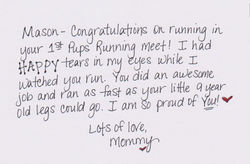 Mason- Congratulations on running in
your 1st Pups Running meet! I had
HAPPY tears in my eyes while I
watched you run. You did an awesome
job and ran as fast as your little 9 year
old legs could go. I am so proud of You!
Lots of love,
Mommy